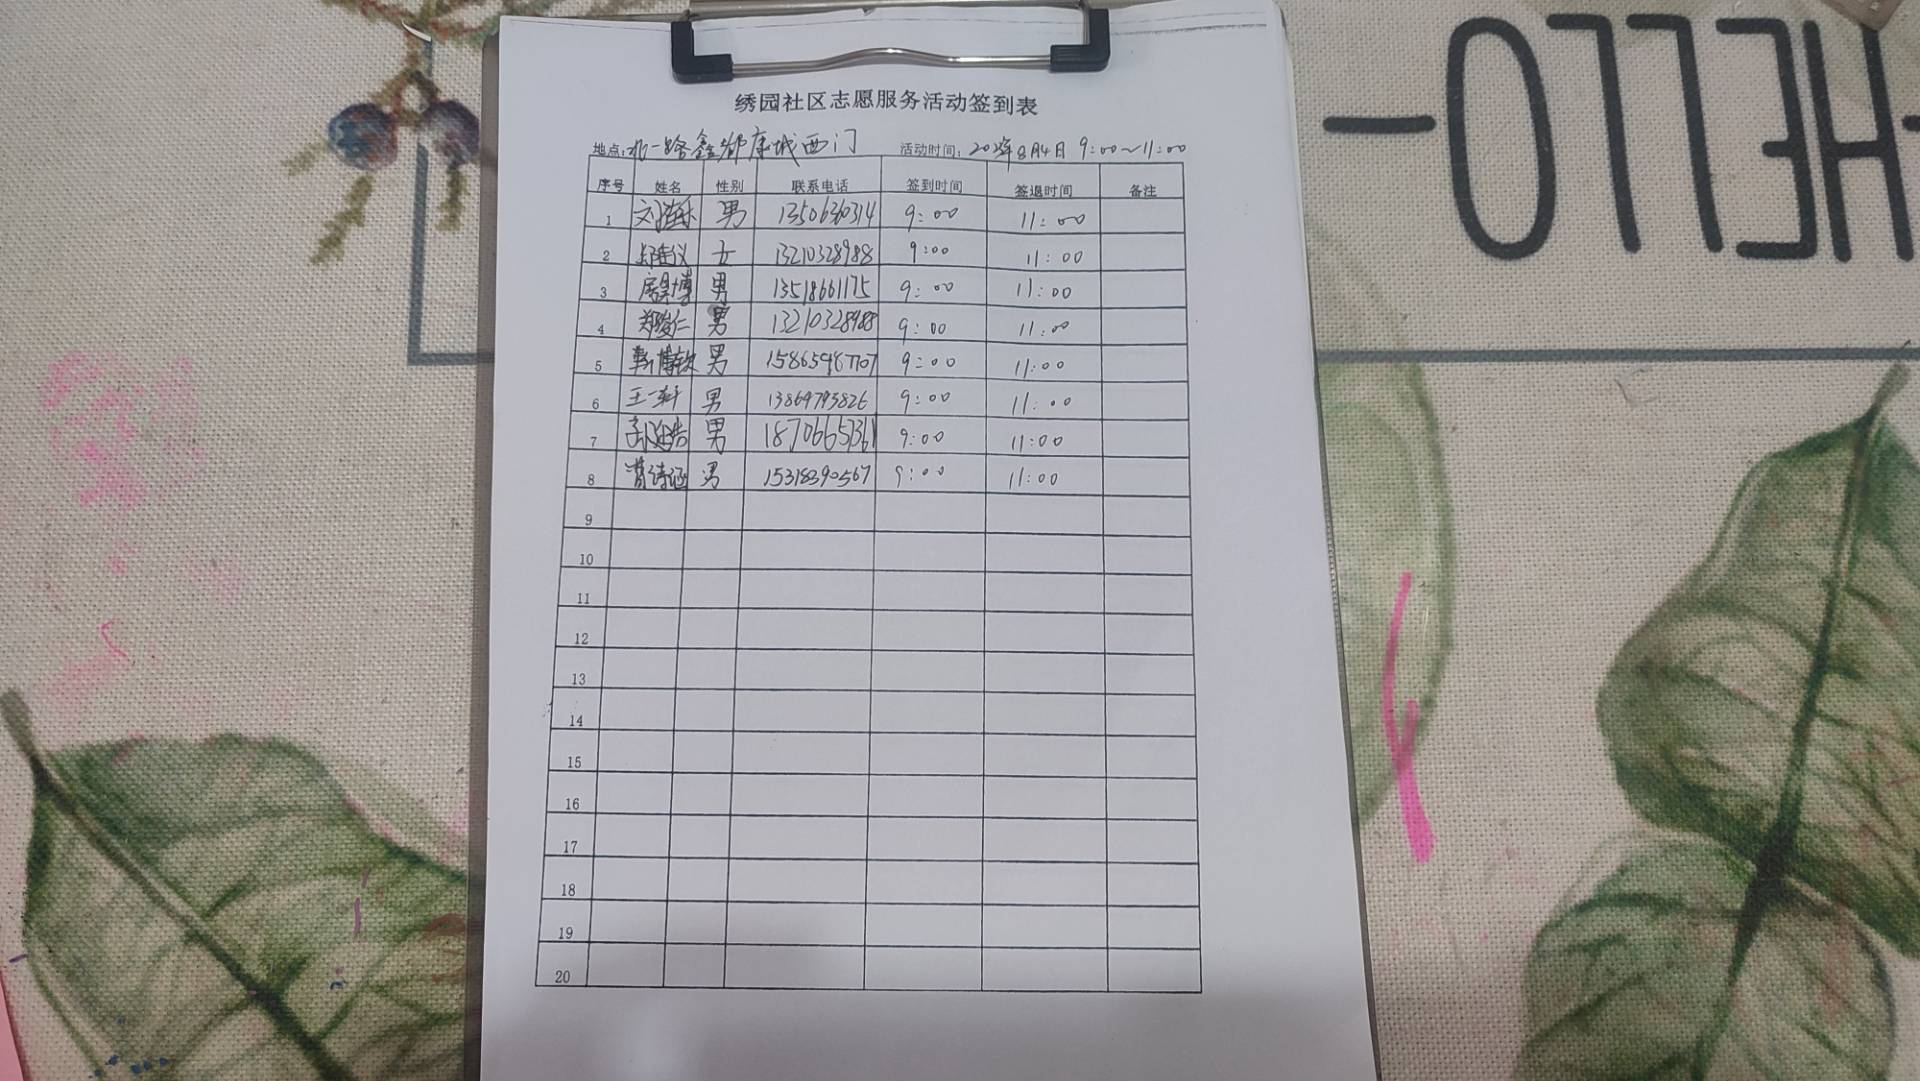 绣园社区志愿服务活动签到表
地点:北一路鑫都康城西门 活动时间: 8月4日 9:00~11:00
序号 姓名 性别 联系电话 签到时间 签退时间 备注
1 男 9:00 11:00
2 女 13210328988 9:00 11:00
3 男 13518661175 9:00 11:00
4 郑俊仁 男 13210328988 9:00 11:00
5 靳博钦 男 15865487707 9:00 11:00
6 王一轩 男 13869795826 9:00 11:00
7 男 9:00 11:00
8 曹诗涵 男 15318390567 9:00 11:00
9
10
11
12
13
14
15
16
17
18
19
20
HELLO